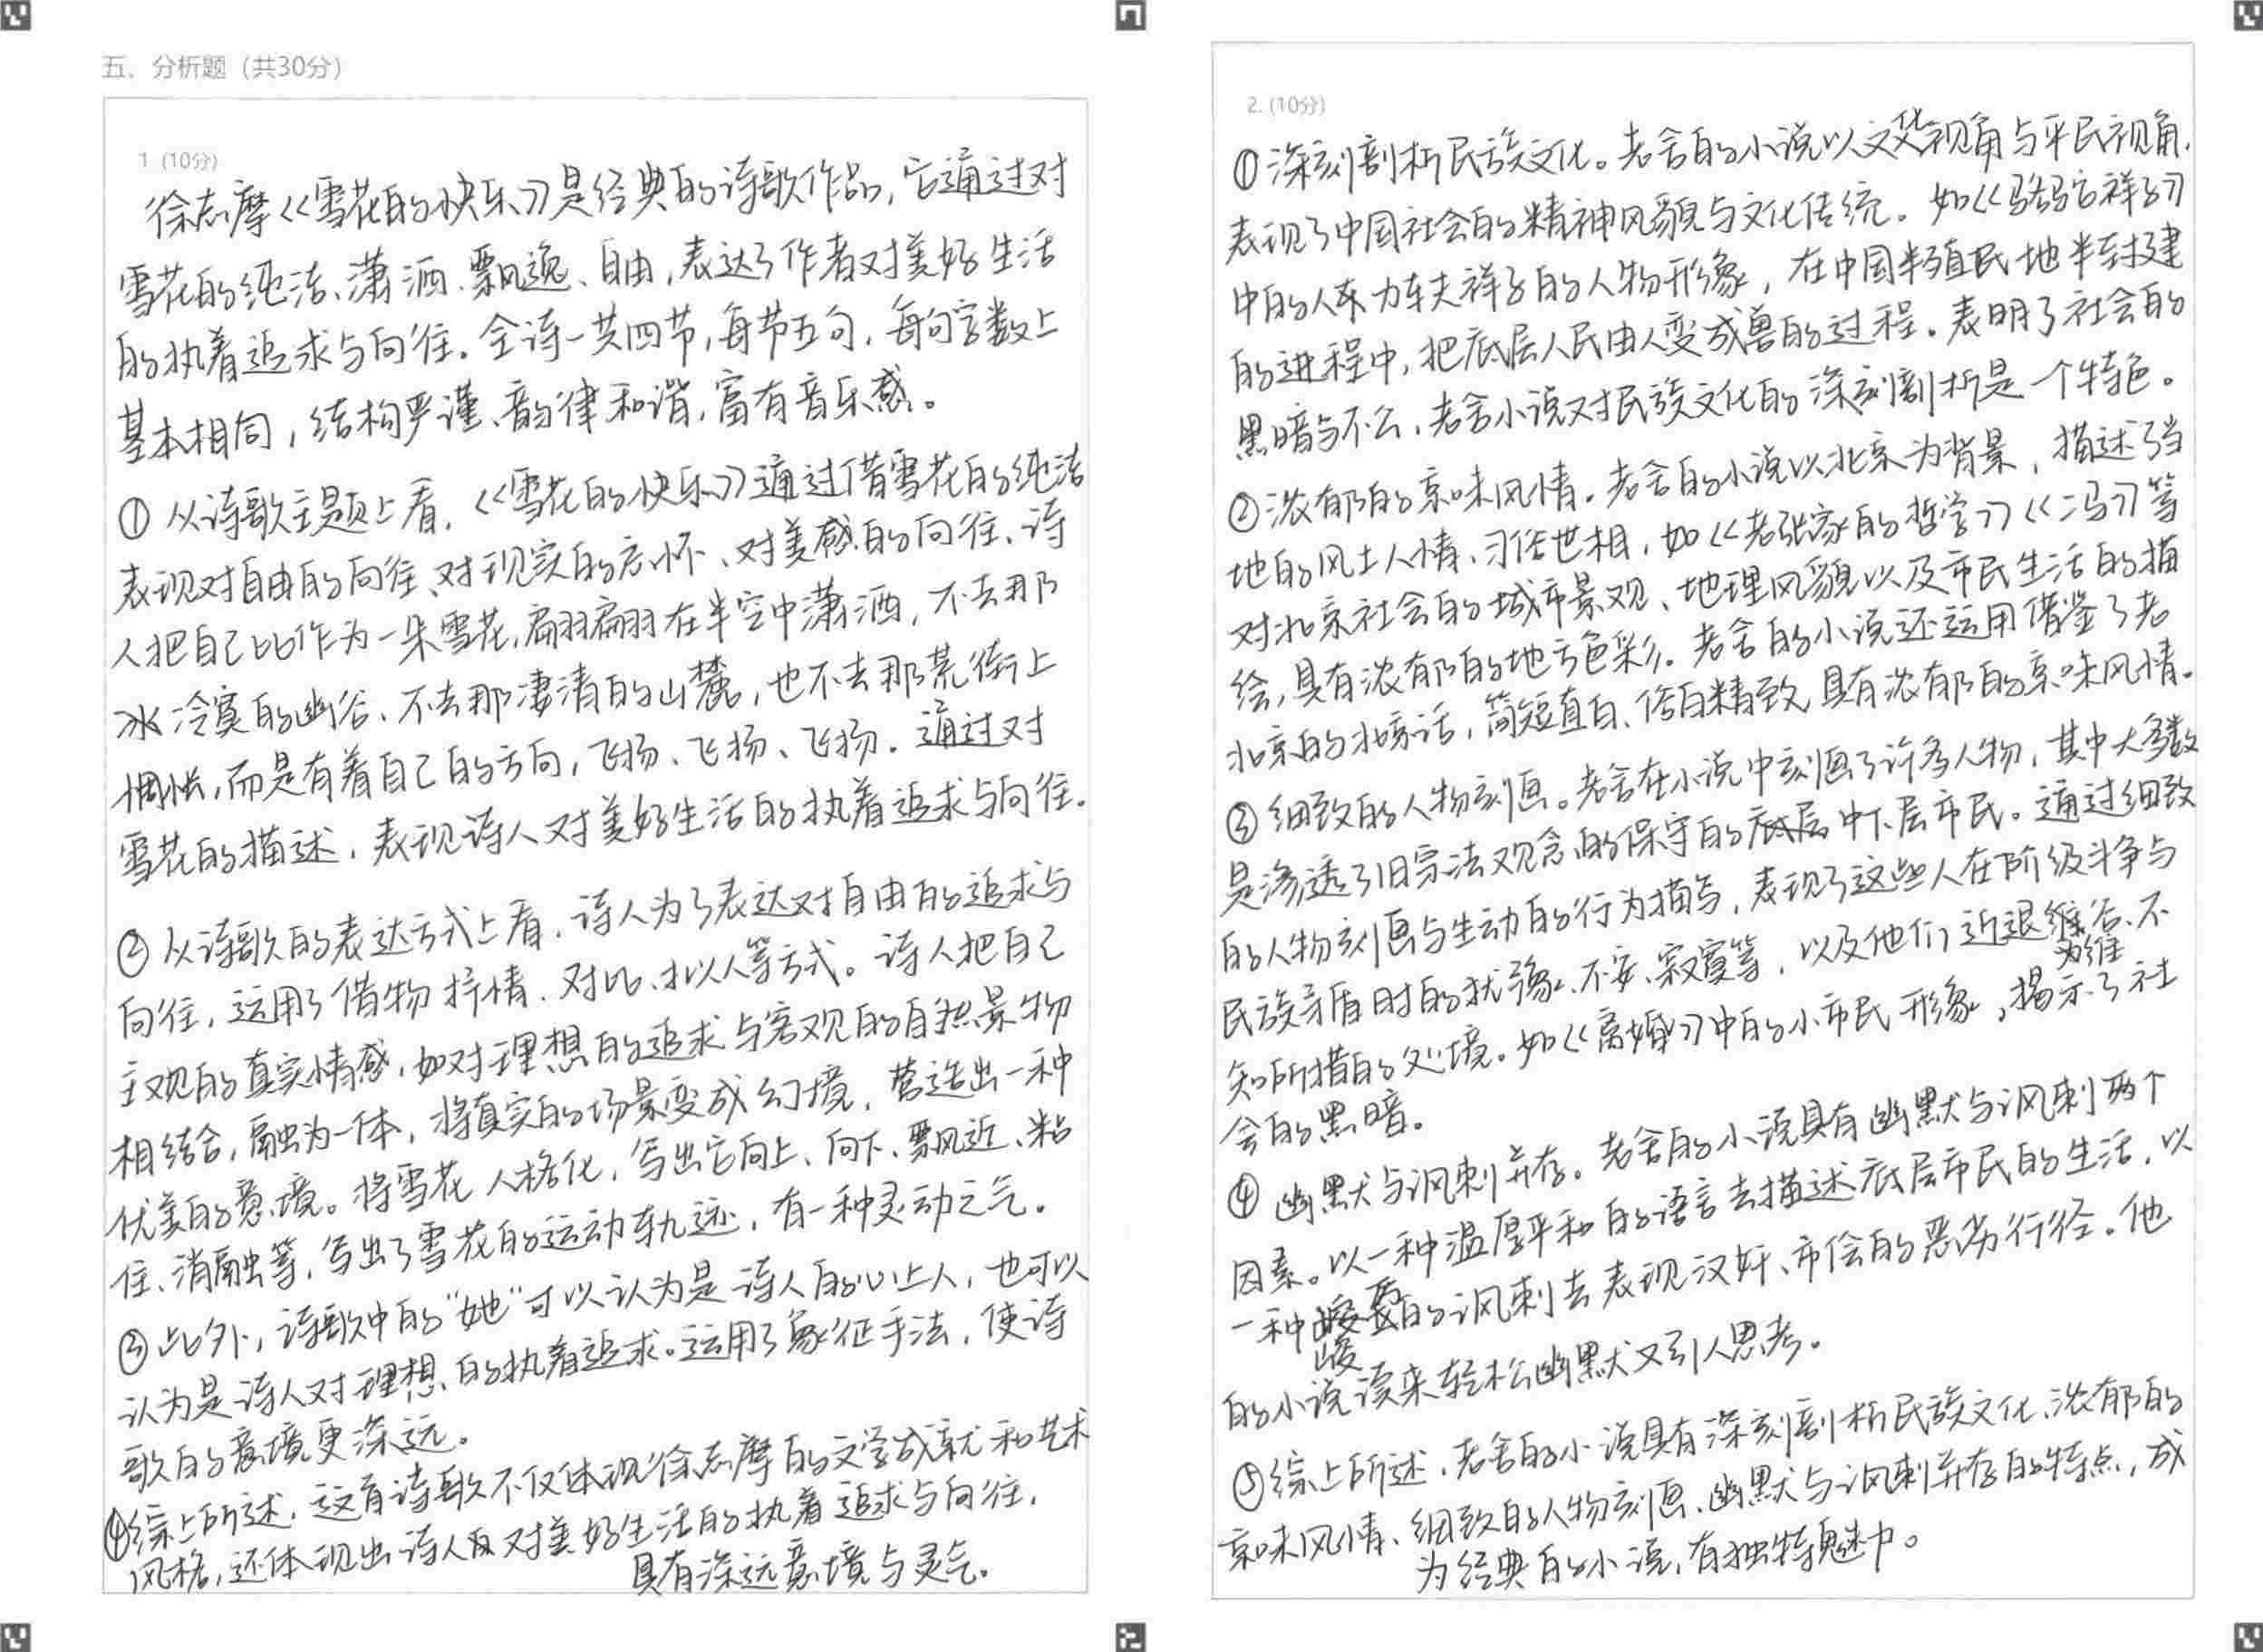 五、分析题（共30分）
1（10分）
徐志摩《雪花的快乐》是经典的诗歌作品，它通过对
雪花的纯洁、潇洒、飘逸、自由，表达了作者对美好生活
的执着追求与向往。全诗一共四节，每节五句，每句字数上
基本相同，结构严谨、韵律和谐，富有音乐感。
① 从诗歌主题上看，《雪花的快乐》通过借雪花的纯洁
表现对自由的向往、对现实的忘怀、对美感的向往、诗
人把自己比作为一朵雪花，翩翩在半空中潇洒，不去那
冷寞的幽谷、不去那凄清的山麓，也不去那荒街上
惆怅，而是有着自己的方向，飞扬、飞扬、飞扬。通过对
雪花的描述，表现诗人对美好生活的执着追求与向往。
② 从诗歌的表达方式上看，诗人为了表达对自由的追求与
向往，运用了借物抒情、对比、拟人等方式。诗人把自己
主观的真实情感，如对理想的追求与客观的自然景物
相结合，融为一体，将真实的场景变成幻境，营造出一种
优美的意境。将雪花人格化，写出它向上、向下、飘近、粘
住、消融等，写出了雪花的运动轨迹，有一种灵动之气。
③ 此外，诗歌中的“她”可以认为是诗人的心上人，也可以
认为是诗人对理想的执着追求。运用了象征手法，使诗
歌的意境更深远。
④综上所述，这首诗歌不仅体现徐志摩的文学成就和艺术
风格，还体现出诗人对美好生活的执着追求与向往，
具有深远意境与灵气。
2.（10分）
①深刻剖析民族文化。老舍的小说以文化视角与平民视角，
表现了中国社会的精神风貌与文化传统。如《骆驼祥子》
中的人力车夫祥子的人物形象，在中国半殖民地半封建
的进程中，把底层人民由人变成兽的过程。表明了社会的
黑暗与不公，老舍小说对民族文化的深刻剖析是一个特色。
②浓郁的京味风情。老舍的小说以北京为背景，描述了当
地的风土人情、习俗世相，如《老张家的哲学》《二马》等
对北京社会的城市景观、地理风貌以及市民生活的描
绘，具有浓郁的地方色彩。老舍的小说还运用借鉴了老
北京的北京话，简短直白、俗白精致，具有浓郁的京味风情。
③ 细致的人物刻画。老舍在小说中刻画了许多人物，其中大多数
是渗透了旧宗法观念的保守的中下层市民。通过细致
的人物刻画与生动的行为描写，表现了这些人在阶级斗争与
民族矛盾时的犹豫、不安、寂寞等，以及他们近退维谷、不
为维
知所措的处境。如《离婚》中的小市民形象，揭示了社
会的黑暗。
④ 幽默与讽刺并存。老舍的小说具有幽默与讽刺两个
因素。以一种温厚平和的语言去描述底层市民的生活，以
一种峻厉的讽刺去表现汉奸、市侩的恶劣行径。他
的小说读来轻松幽默又引人思考。
⑤综上所述，老舍的小说具有深刻剖析民族文化、浓郁的
京味风情、细致的人物刻画、幽默与讽刺并存的特点，成
为经典的小说，有独特魅力。